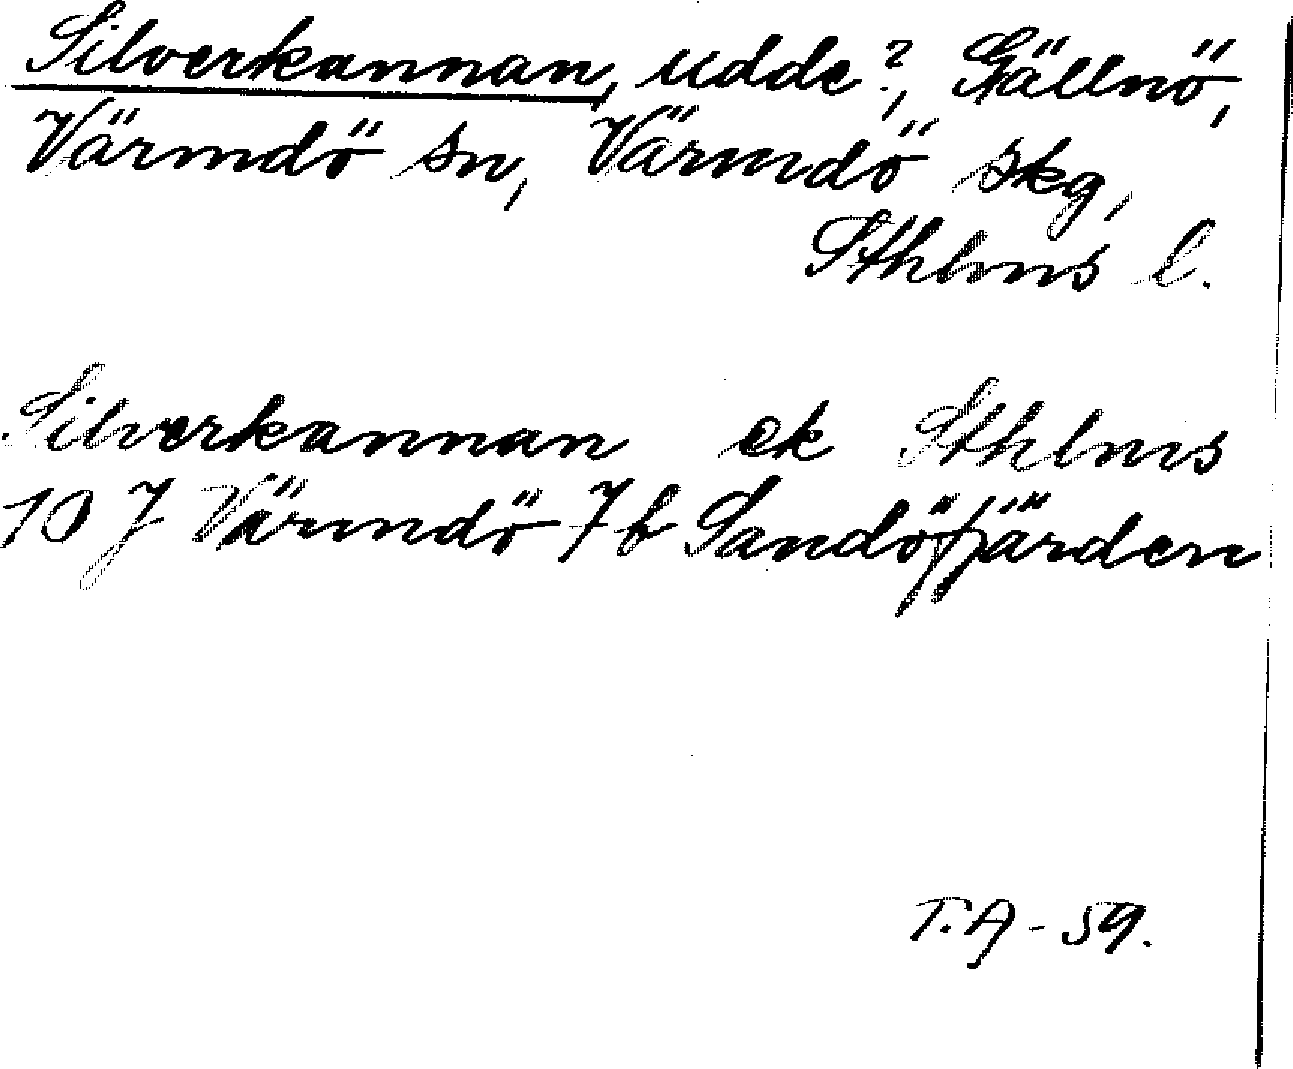 Silverkannan, udde?, Gällnö,
Värmdö sn, Värmdö skg,
Sthlms l.
Silverkannan ek Sthlms
10 J Värmdö 7 b Sandöfjärden
T. A - 59.